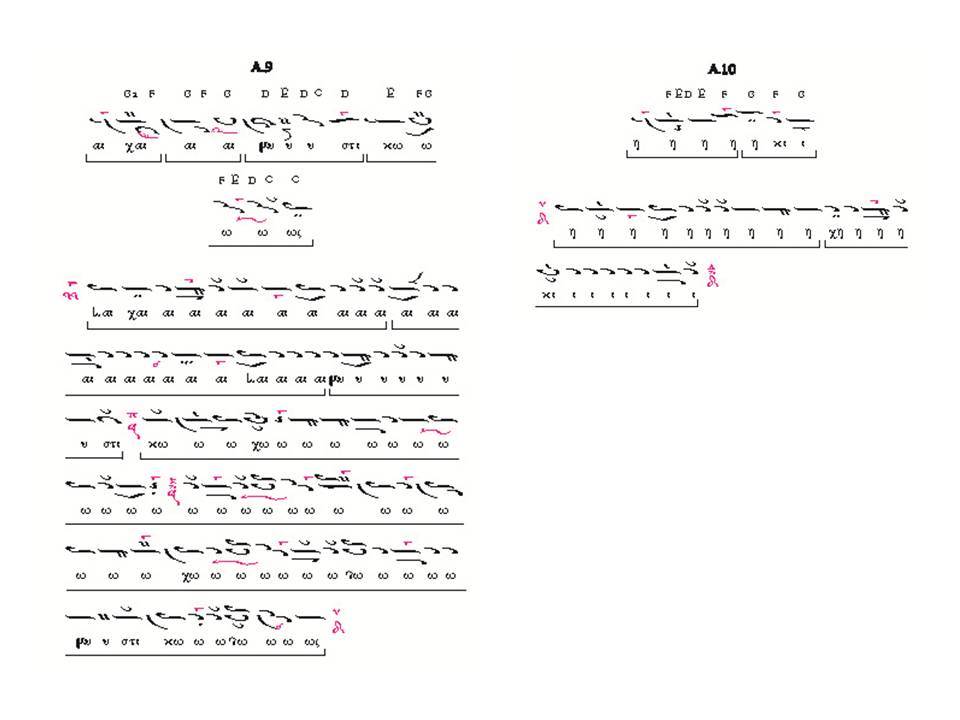 A.9
F G F G D E D C D E F G
αι χαι αι αι βυ υ υ στι κω ω
F E D C C
ω ω ως
χαι αι αι αι αι αι αι αι αι αι αι αι αι
αι αι αι αι αι αι αι αι αι αι βυ υ υ υ υ υ
υ στι κω ω ω χω ω ω ω ω ω ω ω
ω ω ω ω ω ω ω ω ω ω ω ω ω
ω ω ω χω ω ω ω ω ω ω ω ω ω ω
βυ υ στι κω ω ω ω ω ως
A.10
F E D E F G F G
η η η η η κι ι
η η η η η η η η η η χη η η η
κι ι ι ι ι ι ι ι